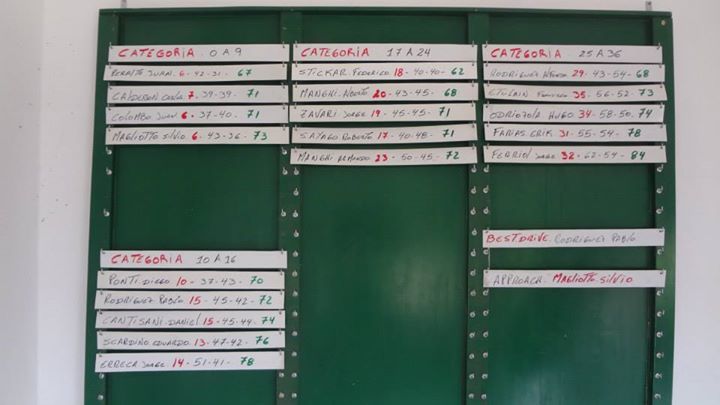 CATEGORIA 0 A 9
JUAN 6-42-31-67
CALDERON 7-39-39-71
COLOMBO JUAN 6-37-40-71
MAGLIOTTO SILVIO 6-43-36-73
CATEGORIA 10 A 16
PONTI DIEGO 10-37-43-70
RODRIGUEZ PABLO 15-45-42-72
CANTISANI DANIEL 15-45-44-74
SCARDINO EDUARDO 13-47-42-76
ERRECA JORGE 14-51-41-78
CATEGORIA 17 A 24
STICKAR FEDERICO 18-40-40-62
MANGHI 20-43-45-68
ZAVARI JORGE 19-45-45-71
SAYAGO ROBERTO 17-40-48-71
MANGHI ARMANDO 23-50-45-72
CATEGORIA 25 A 36
RODRIGUEZ 29-43-54-68
35-56-52-73
ODRIOZOLA HUGO 34-58-50-74
FARIAS ERIK 31-55-54-78
JORGE 32-62-54-84
BEST DRIVE RODRIGUEZ PABLO
APPROACH MAGLIOTTO SILVIO